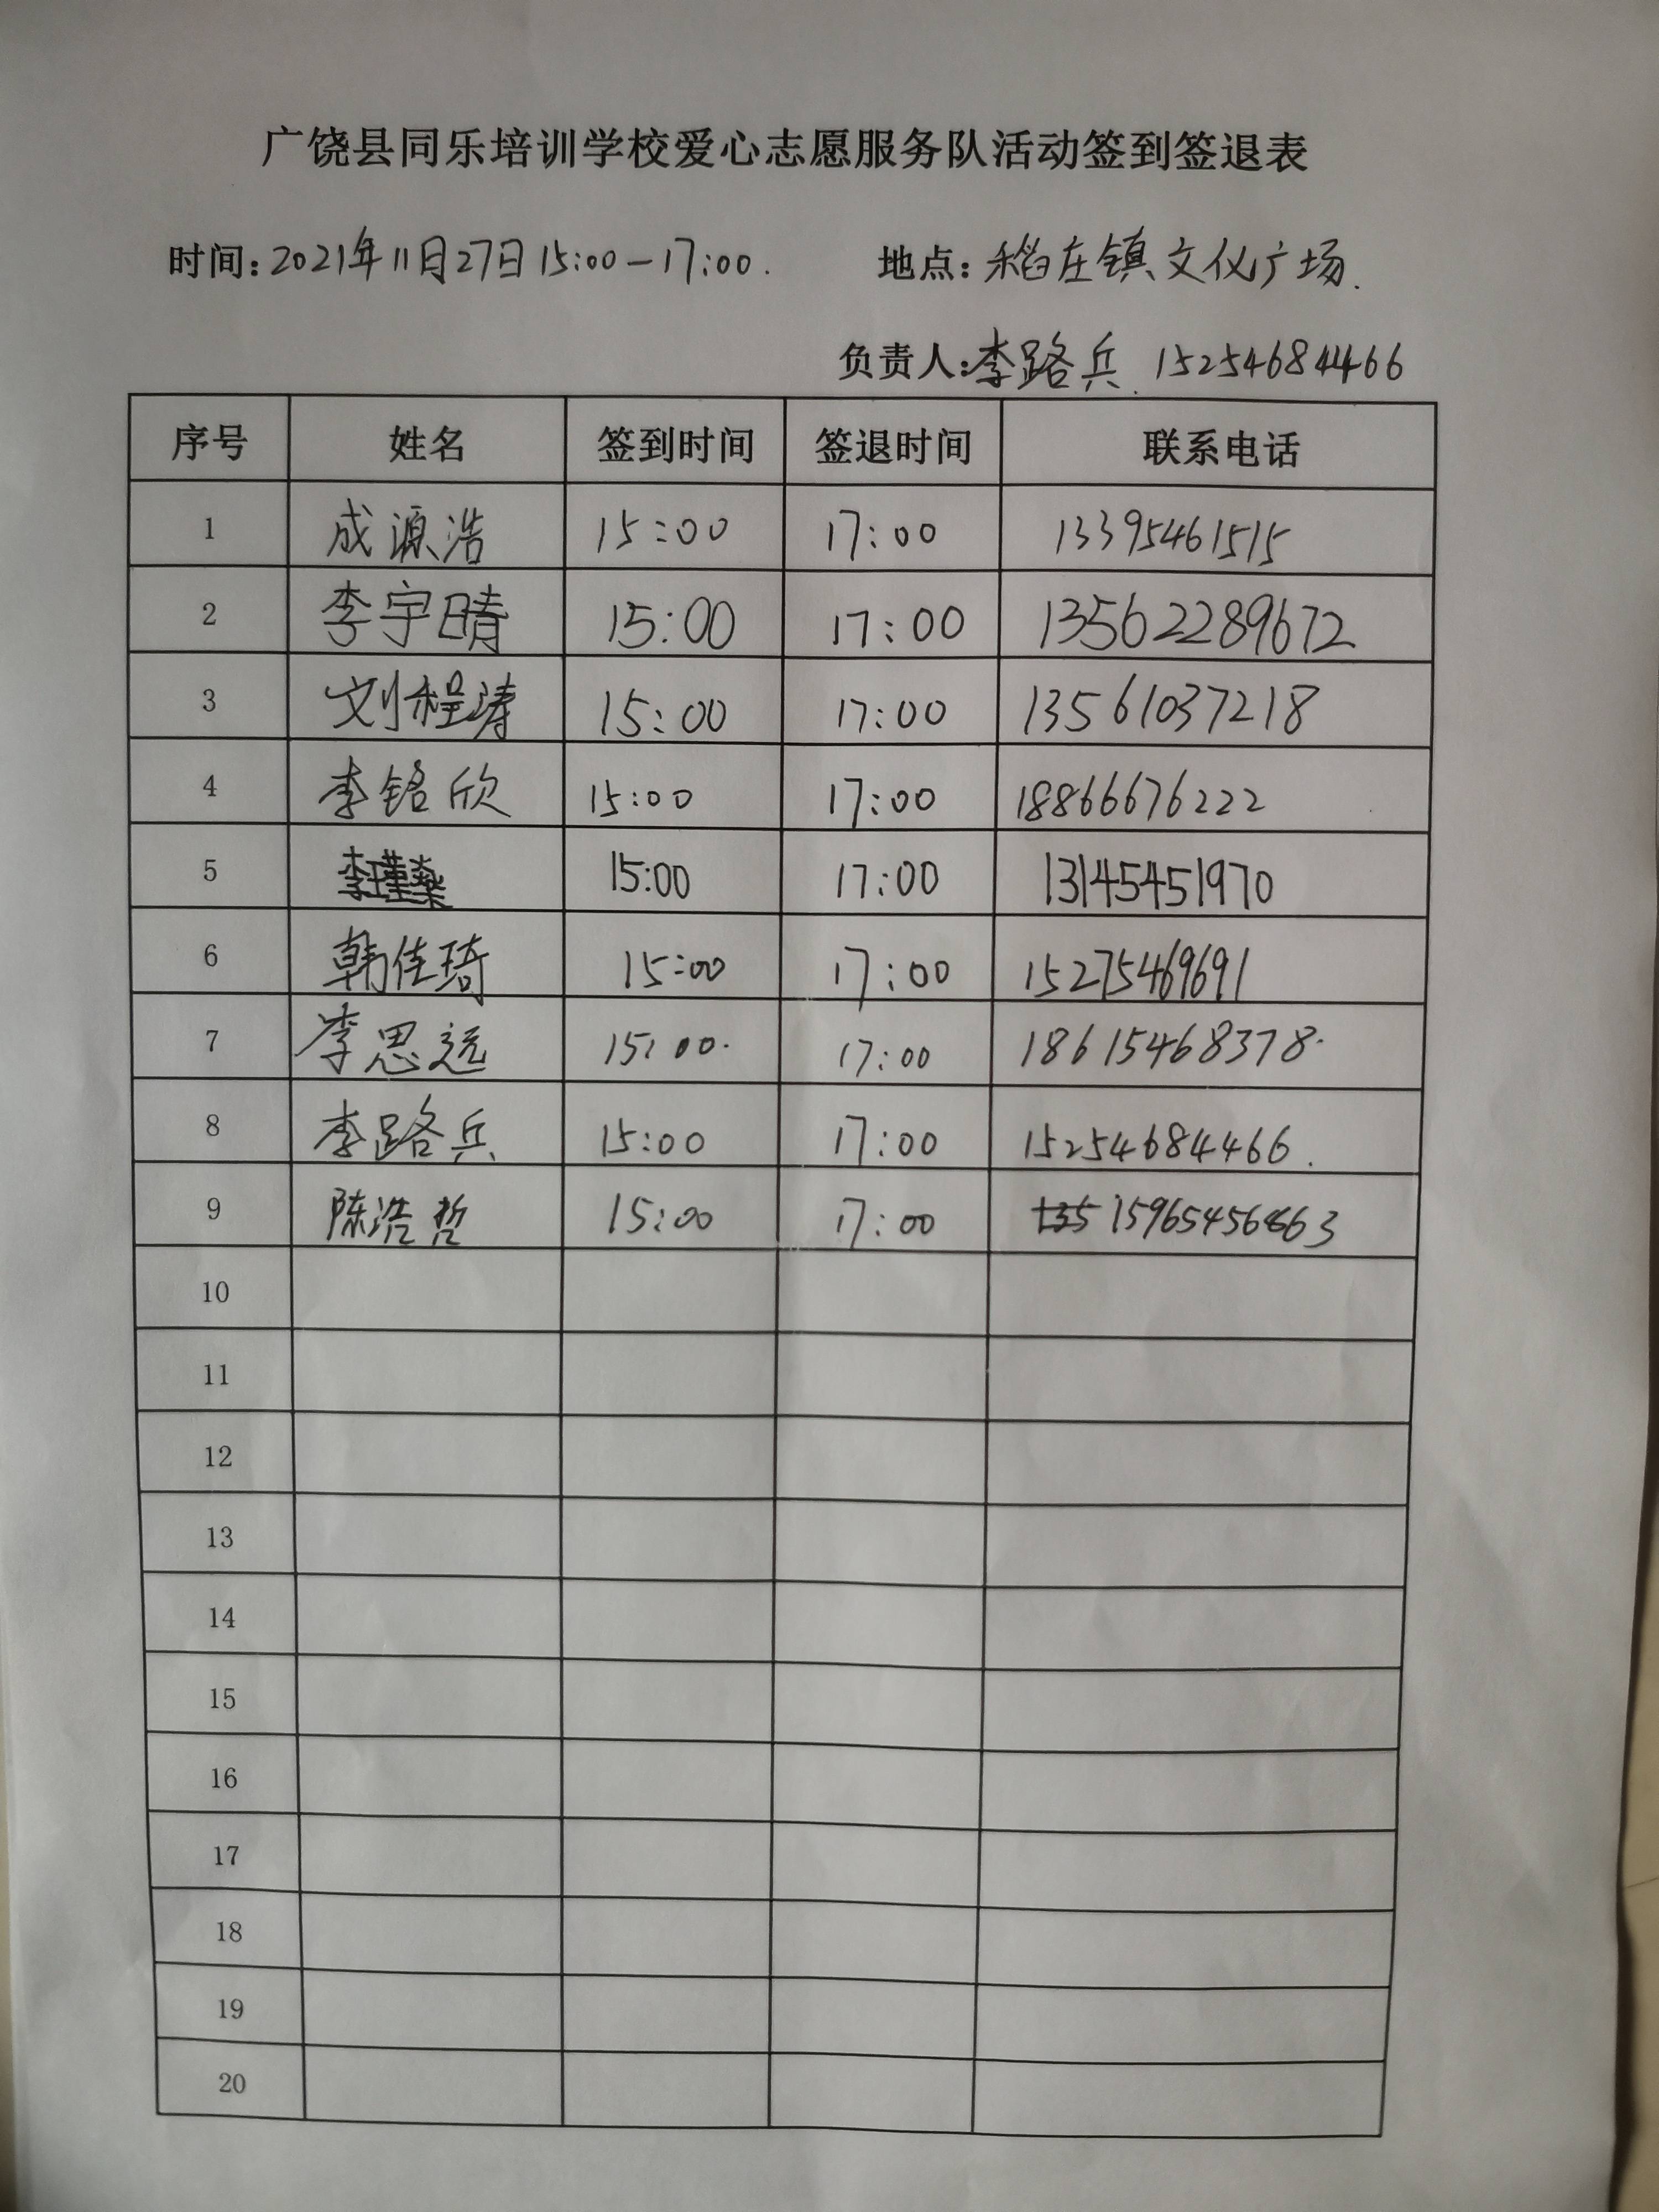 广饶县同乐培训学校爱心志愿服务队活动签到签退表
时间:2021年11月27日15:00-17:00. 地点:稻庄镇文化广场.
负责人:李路兵 15254684466
序号 姓名 签到时间 签退时间 联系电话
1 成源浩 15:00 17:00 13395461515
2 李宇晴 15:00 17:00 13562289672
3 刘程涛 15:00 17:00 13561037218
4 李铭欣 15:00 17:00 18866676222
5 李瑾燊 15:00 17:00 13145451970
6 韩佳琦 15:00 17:00 15275469691
7 李思远 15:00. 17:00 18615468378.
8 李路兵 15:00 17:00 15254684466.
9 陈浩哲 15:00 17:00 135 15965456863
10
11
12
13
14
15
16
17
18
19
20